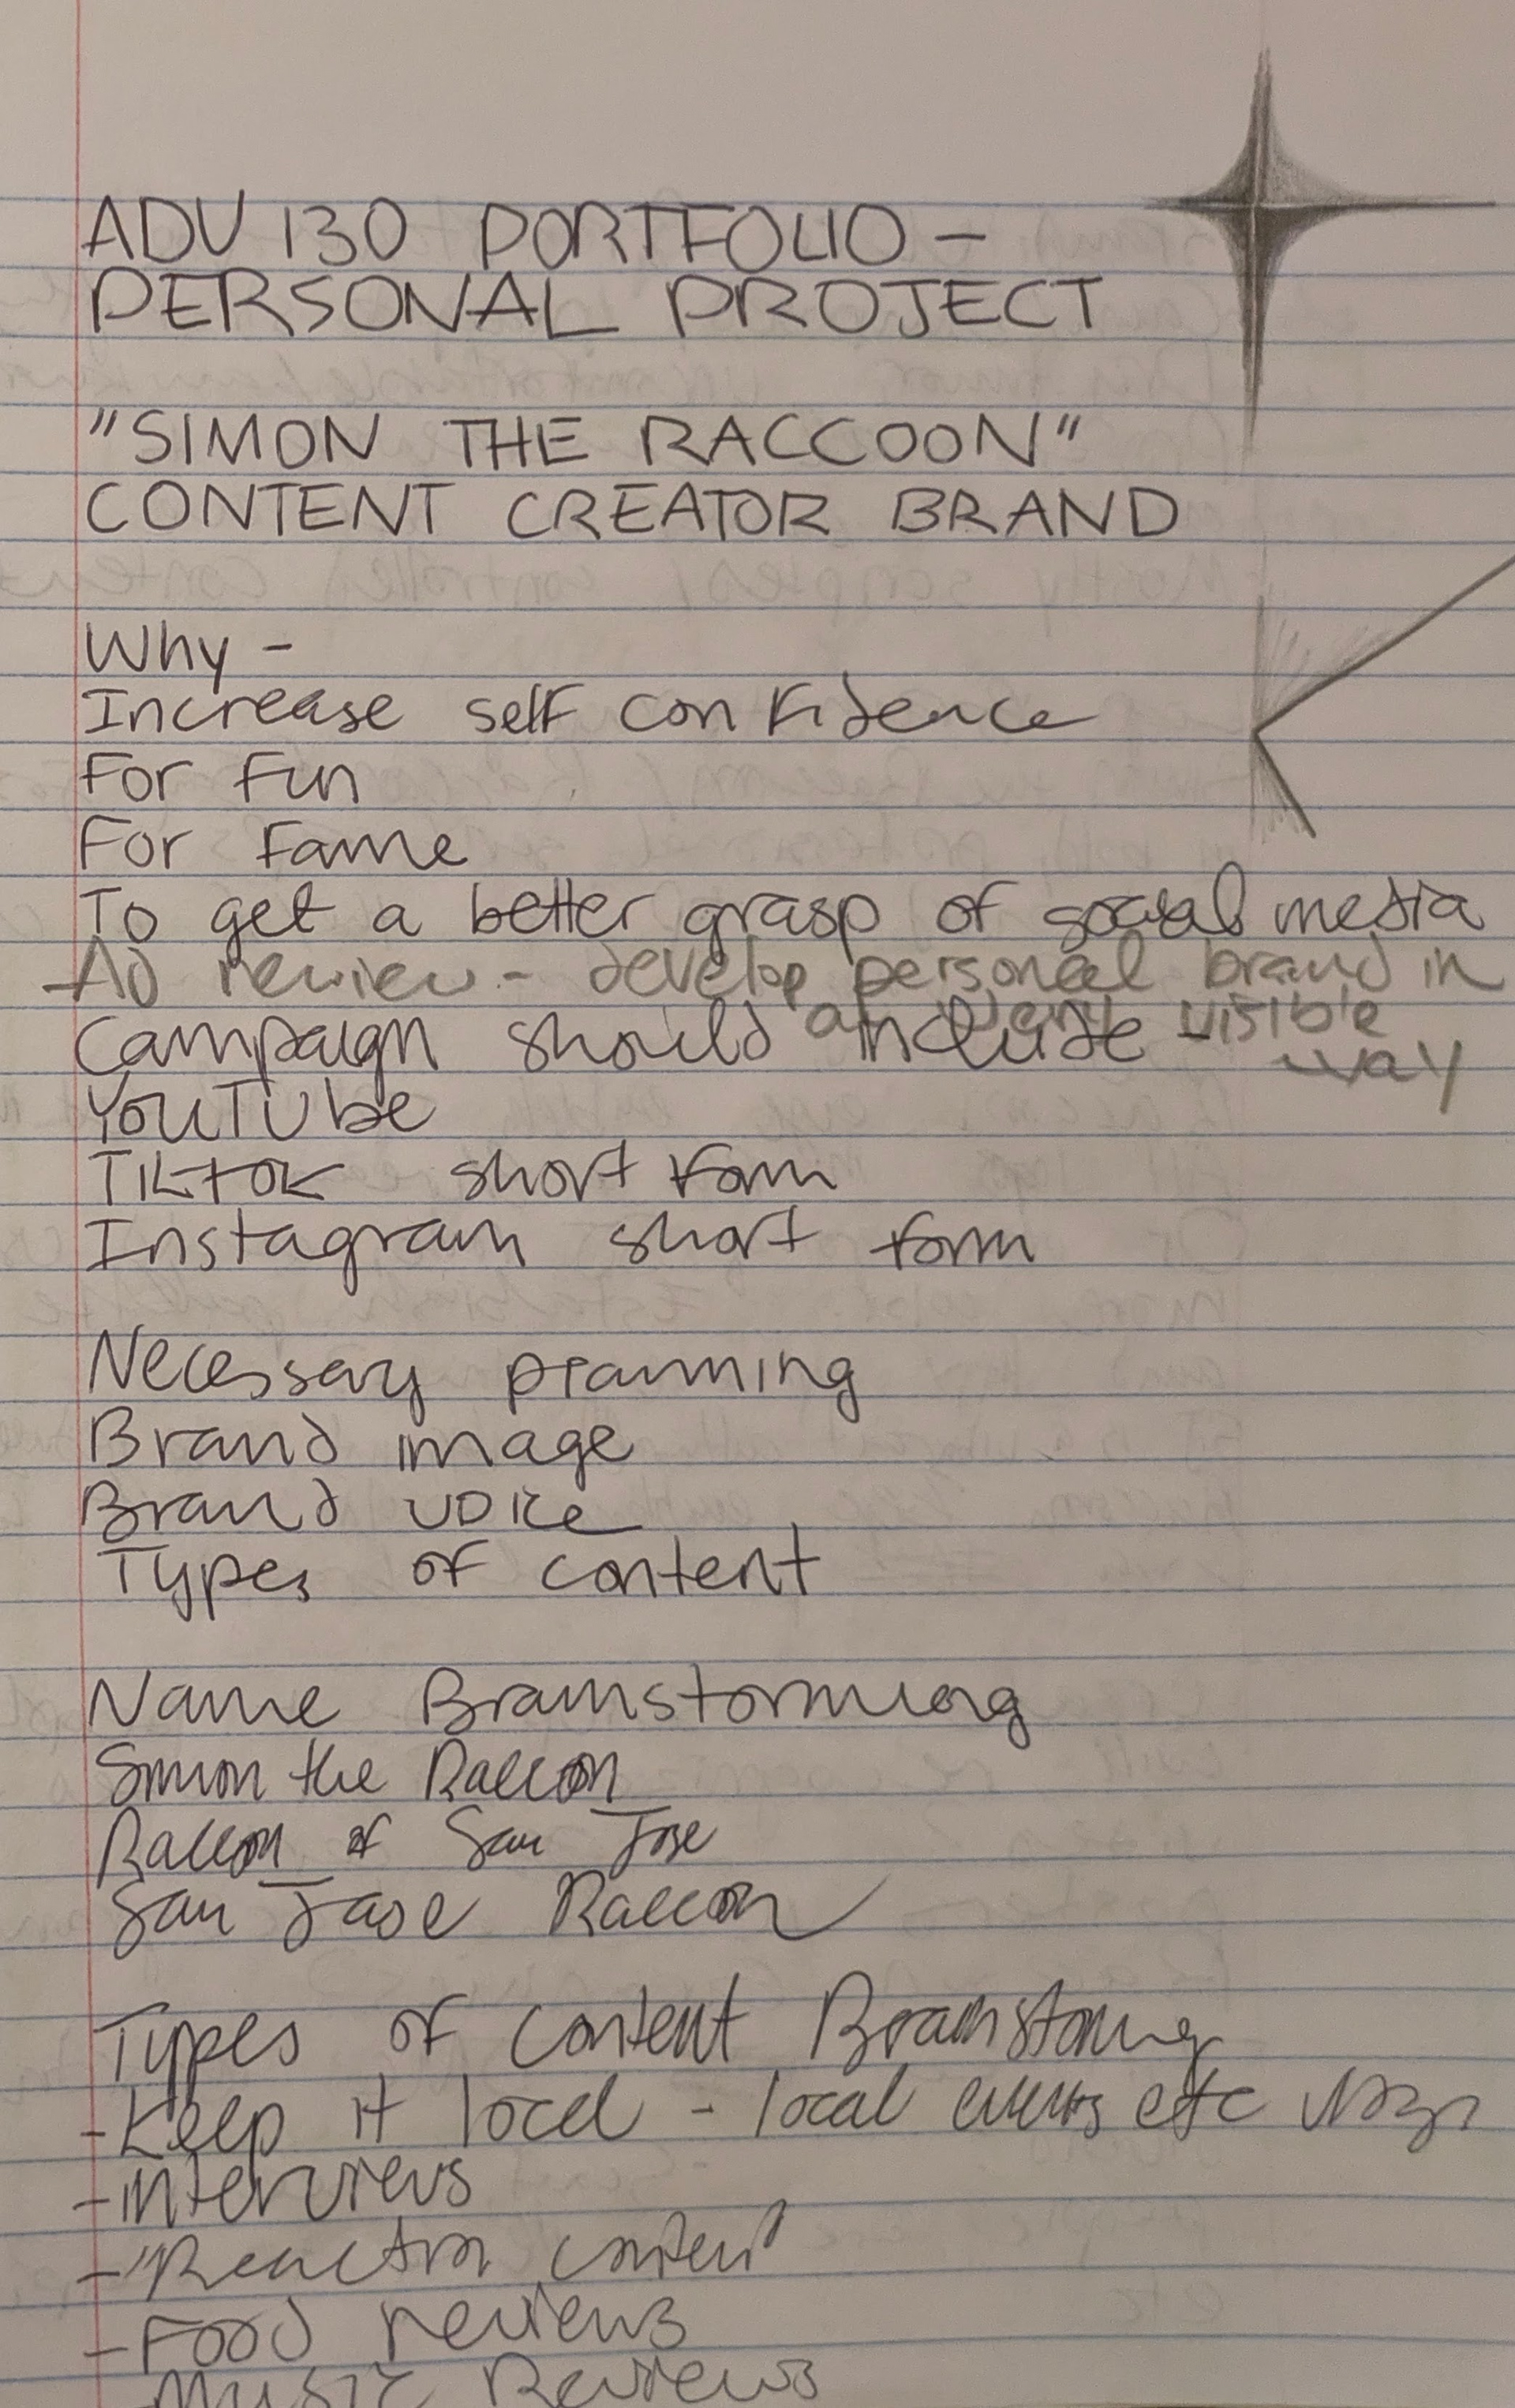 ADV 130 PORTFOLIO -
PERSONAL PROJECT
"SIMON THE RACCOON"
CONTENT CREATOR BRAND
Why -
Increase self confidence
For Fun
For Fame
To get a better grasp of social media
- AD review - develop personal brand in
a visible
way
Campaign should include -
YouTube
TikTok short form
Instagram short form
Necessary planning
Brand image
Brand voice
Types of content
Name Brainstorming
Simon the Raccoon
Raccoon of San Jose
San Jose Raccoon
Types of content Brainstorming
- Keep it local - local events etc vlogs
- interviews
- Reaction content
- Food reviews
- Music Reviews